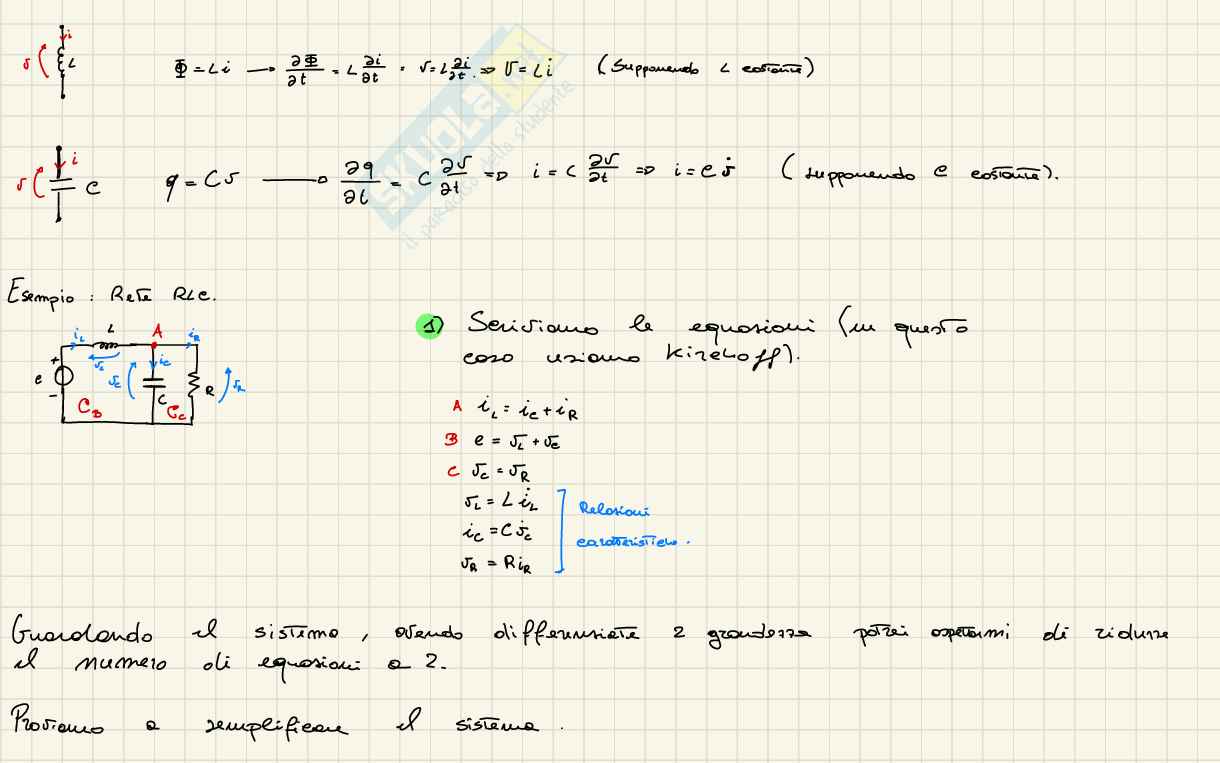 i
v
L
Φ = Li → ∂Φ/∂t = L ∂i/∂t · v = L ∂i/∂t ⇒ v = L i̇ (Supponendo L costante)
SKUOLA.net
il paradiso dello studente
i
v
C
q = Cv → ∂q/∂t = C ∂v/∂t ⇒ i = C ∂v/∂t ⇒ i = C v̇ (supponendo C costante).
Esempio : Rete RLC.
i_L L A i_R
+ v_L i_C
e v_C C R v_R
-
C_B C_C
1) Scriviamo le equazioni (in questo
caso usiamo Kirchoff).
A i_L = i_C + i_R
B e = v_L + v_C
C v_C = v_R
v_L = L i̇_L
i_C = C v̇_C
v_R = R i_R
Relazioni
caratteristiche.
Guardando il sistema, avendo differenziate 2 grandezze potrei aspettarmi di ridurre
il numero di equazioni a 2.
Proviamo a semplificare il sistema.